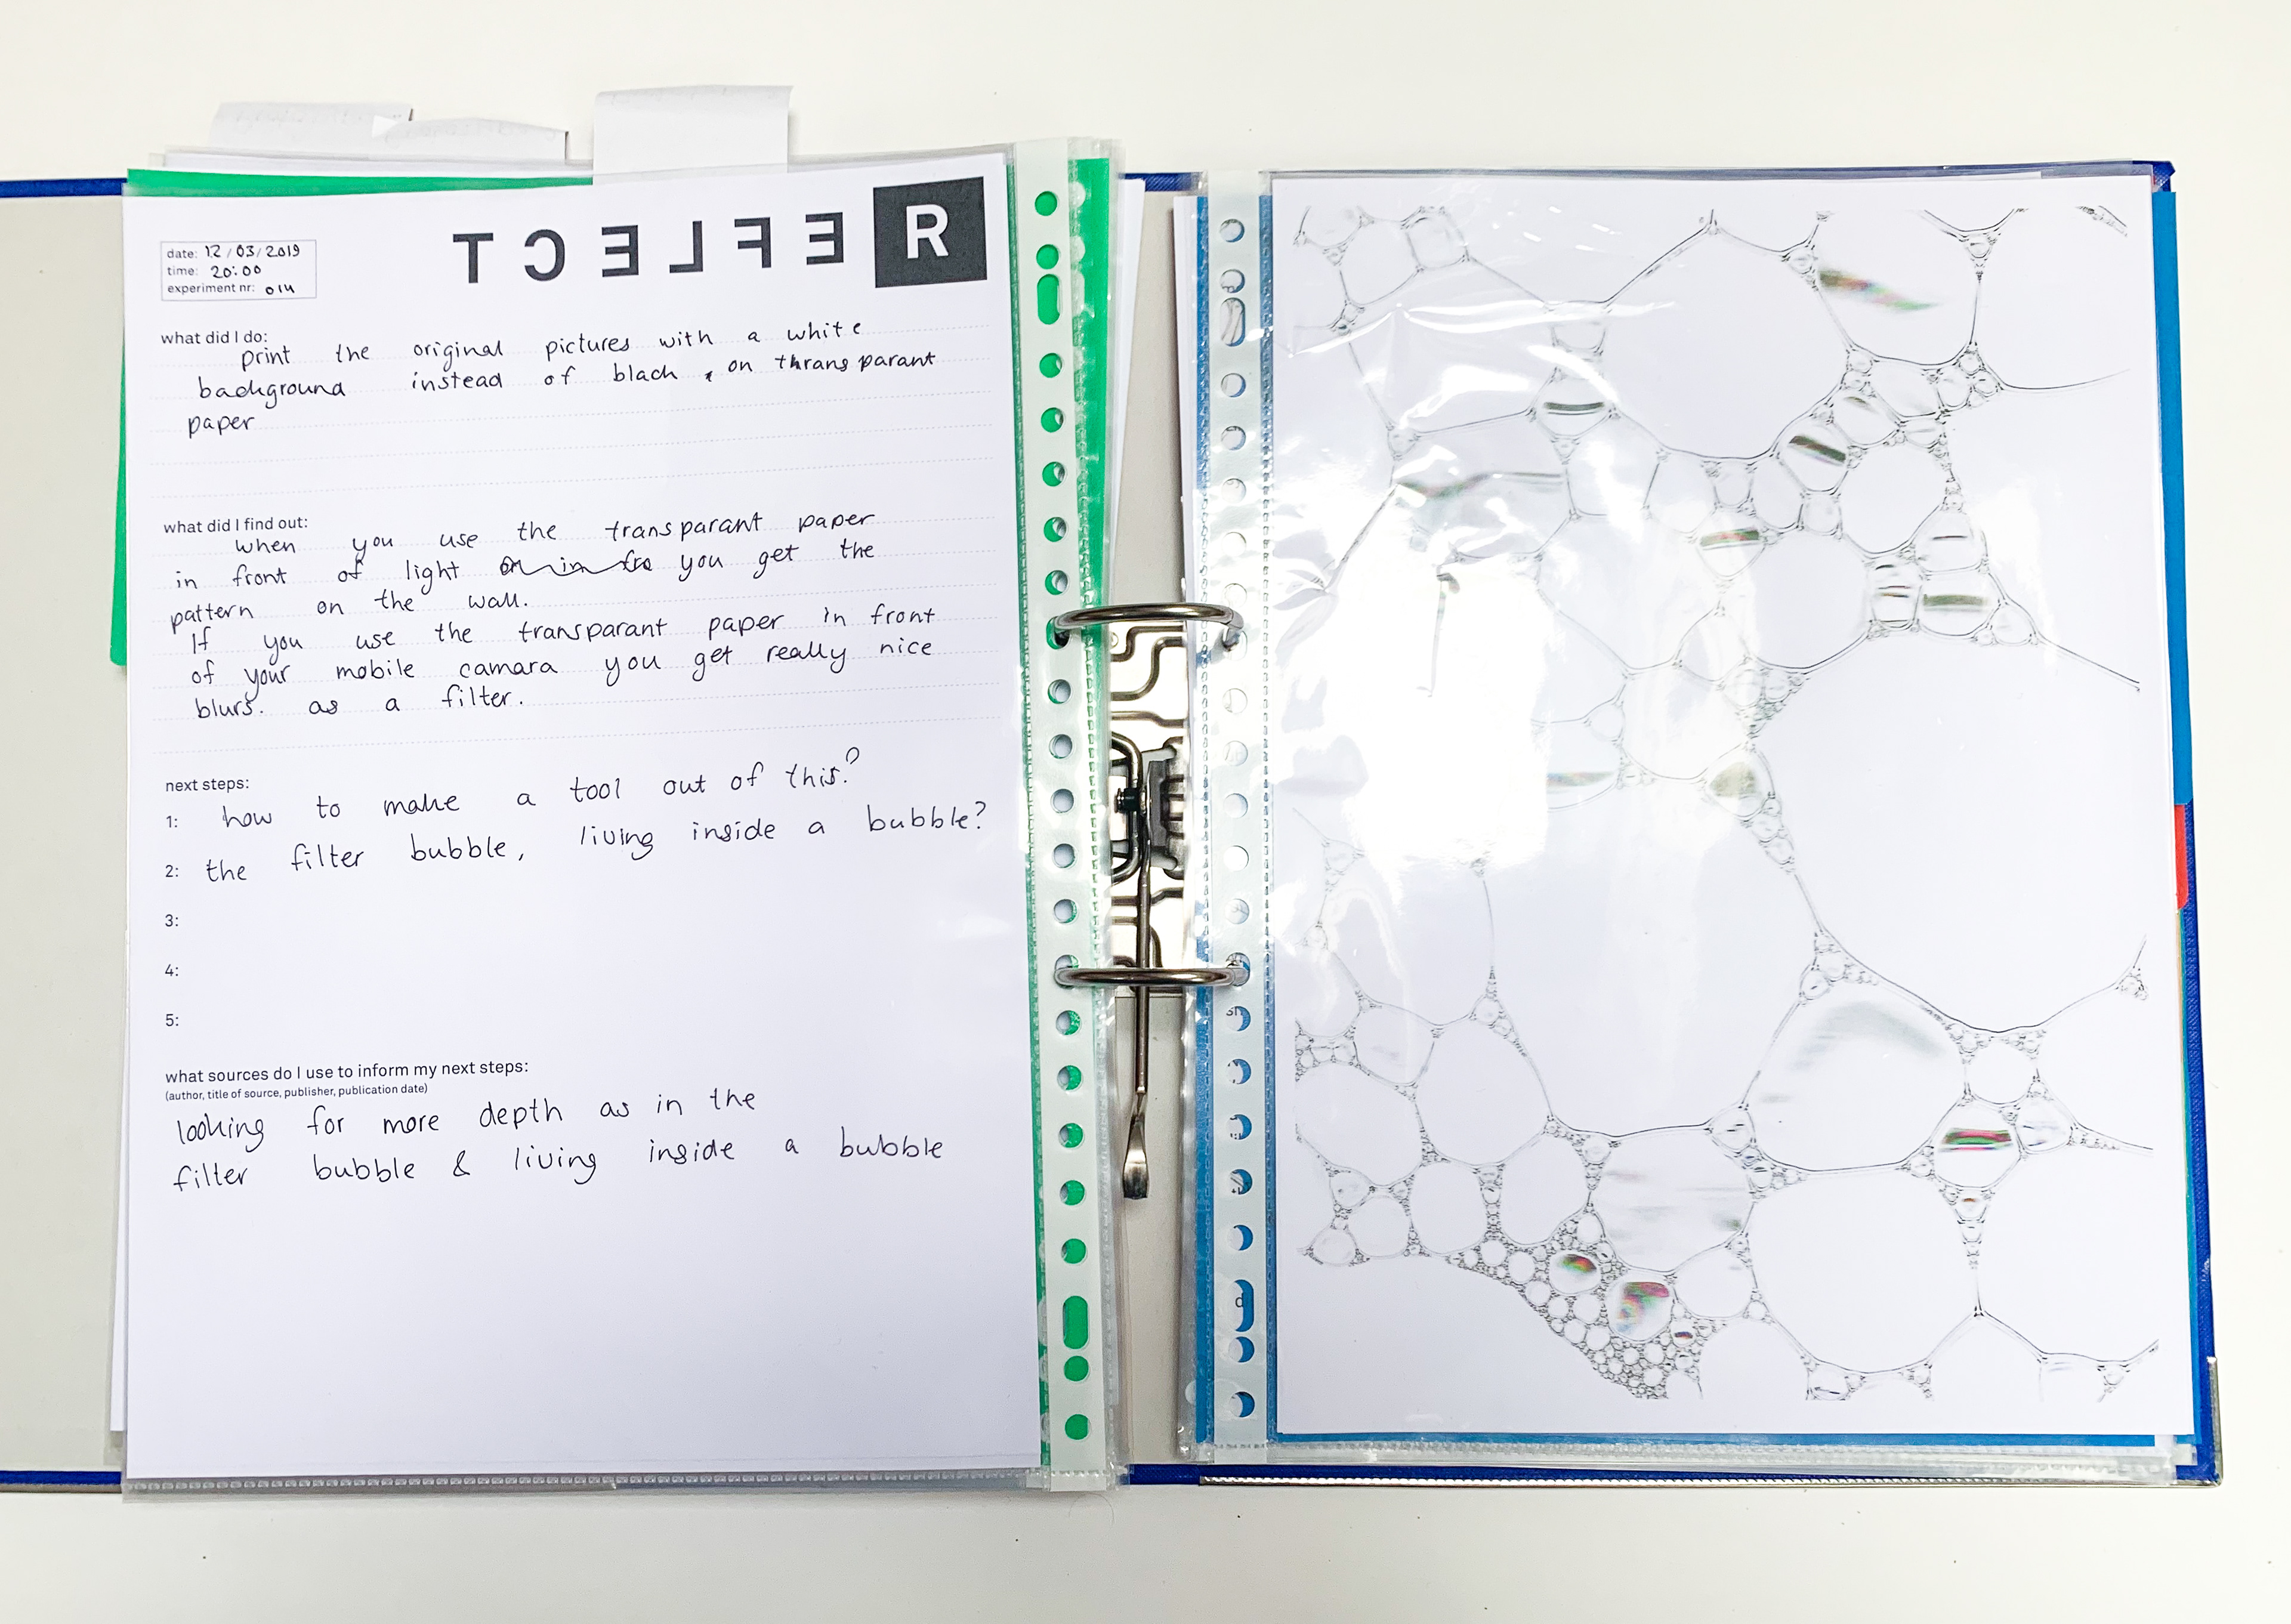 REFLECT
date: 12/03/2019
time: 20:00
experiment nr: 014
what did I do:
print the original pictures with a white
background instead of black, on thransparant
paper
what did I find out:
when you use the transparant paper
in front of light on in fro you get the
pattern on the wall.
If you use the transparant paper in front
of your mobile camara you get really nice
blurs. as a filter.
next steps:
1: how to make a tool out of this?
2: the filter bubble, living inside a bubble?
3:
4:
5:
what sources do I use to inform my next steps:
(author, title of source, publisher, publication date)
looking for more depth as in the
filter bubble & living inside a bubble